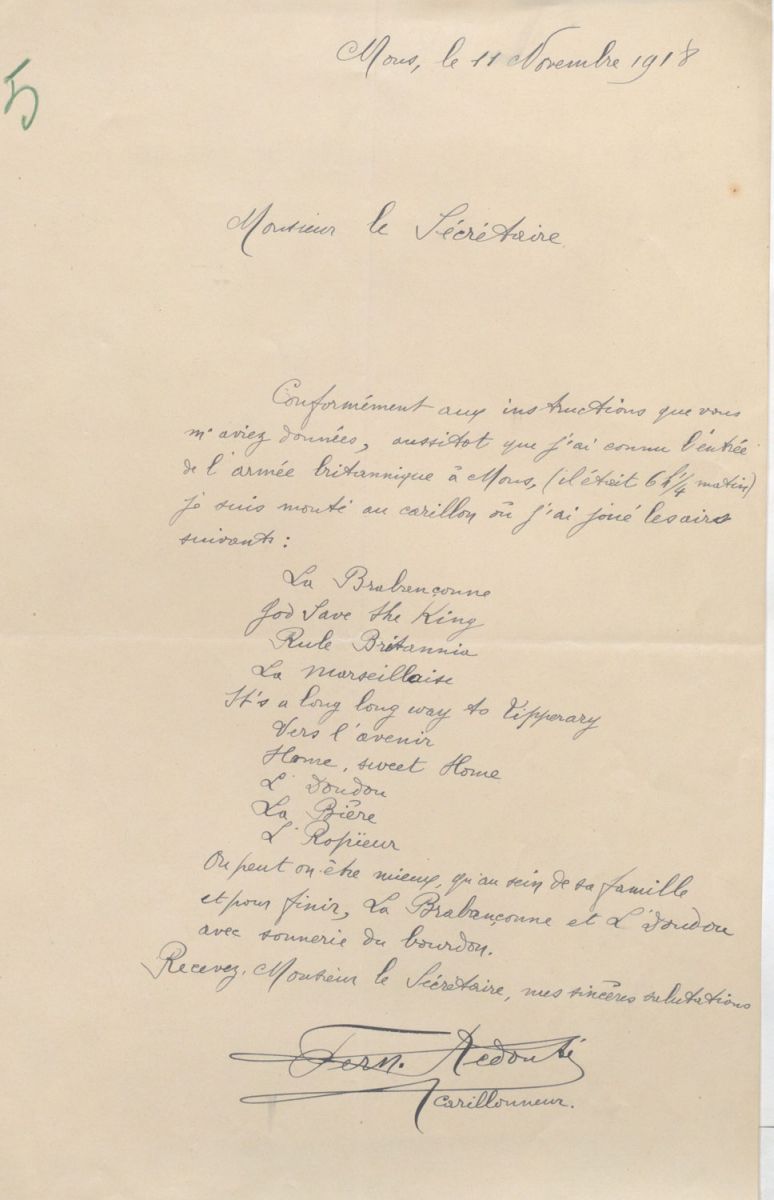 Mons, le 11 Novembre 1918
5
Monsieur le Sécrétaire
Conformément aux instructions que vous
m'aviez données, aussitot que j'ai connu l'entrée
de l'armée britannique à Mons, (il était 6 h 1/4 matin)
je suis monté au carillon où j'ai joué les airs
suivants :
La Brabançonne
God Save the King
Rule Britannia
La Marseillaise
It's a long long way to Tipperary
Vers l'avenir
Home, sweet Home
L' Doudou
La Bière
L' Ropïeur
Ou peut on être mieux, qu'au sein de sa famille
et pour finir, La Brabançonne et L' Doudou
avec sonnerie du bourdon.
Recevez, Monsieur le Sécrétaire, mes sincères salutations
Fern. Redouté
Carillonneur.